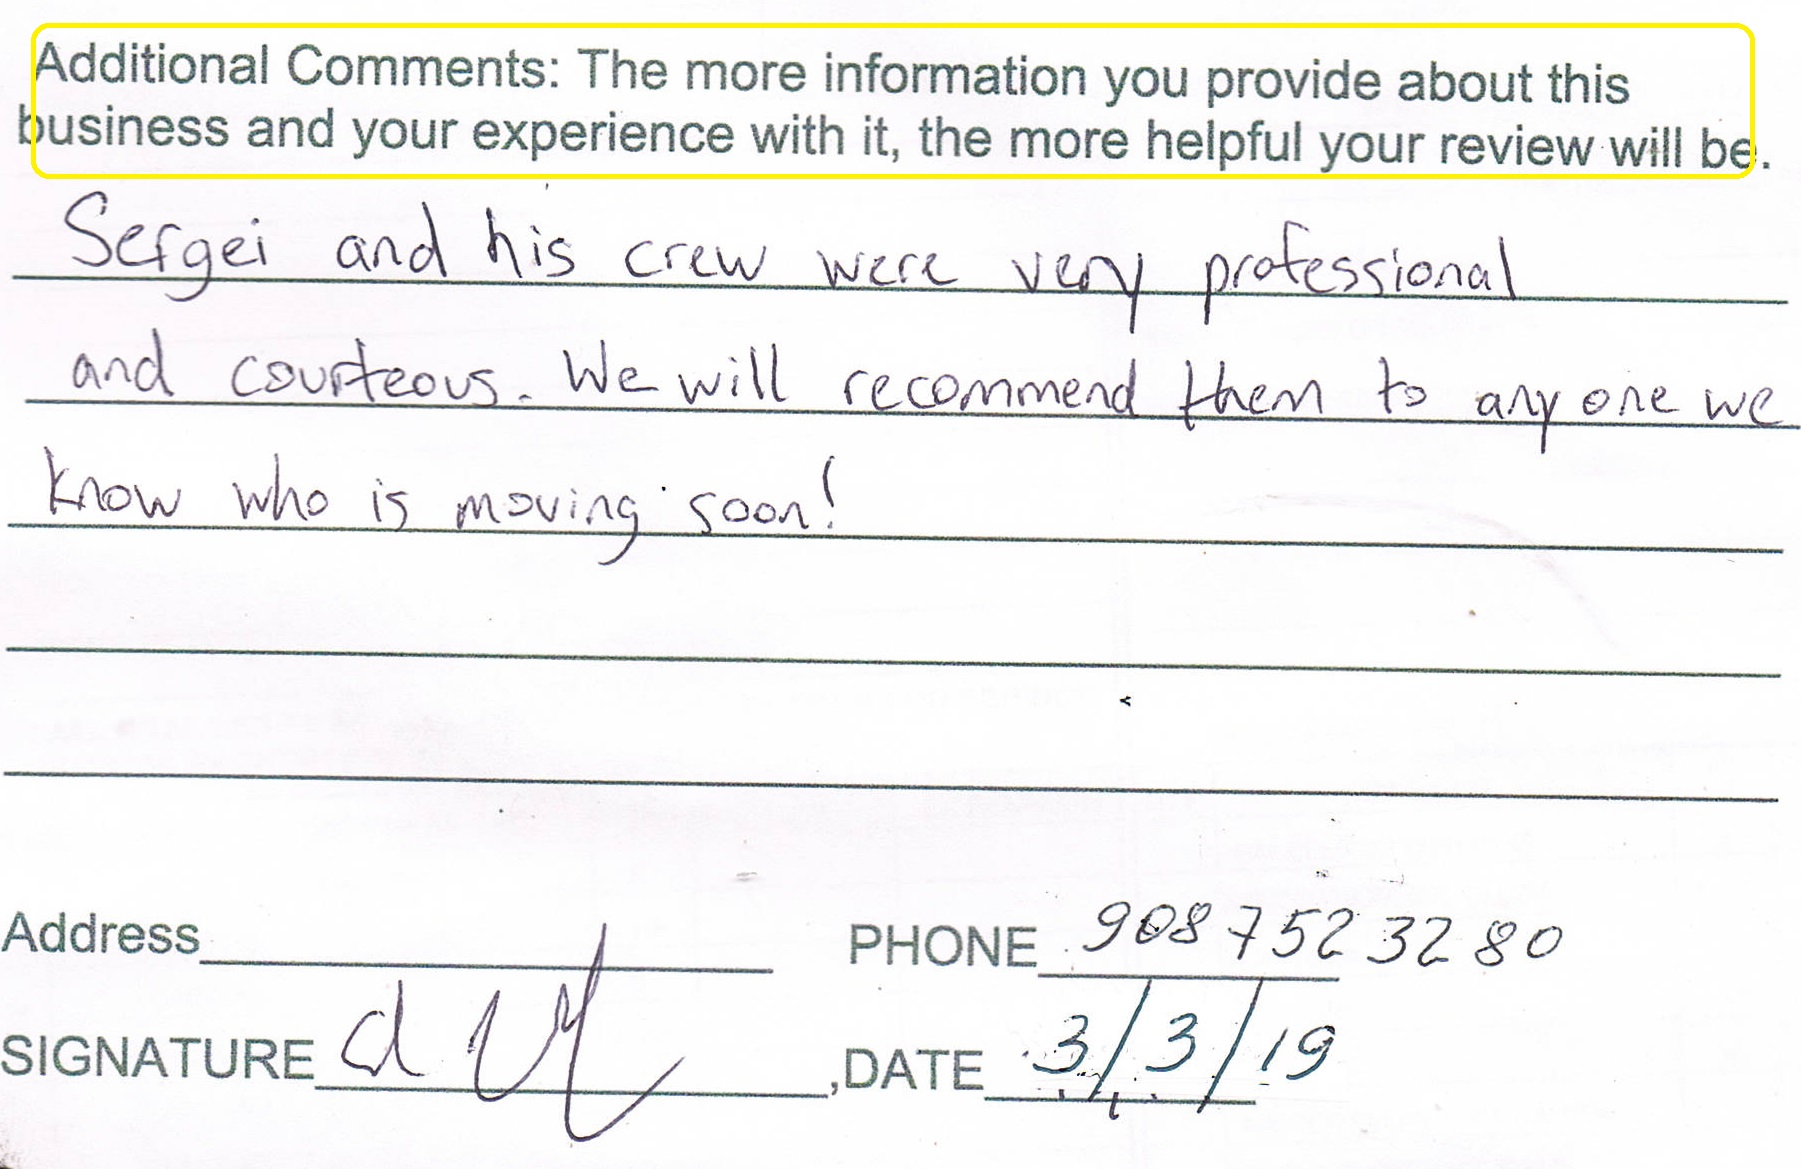 Additional Comments: The more information you provide about this
business and your experience with it, the more helpful your review will be.
Sergei and his crew were very professional
and courteous. We will recommend them to anyone we
know who is moving soon!
Address
PHONE 908 752 3280
SIGNATURE
,DATE 3/3/19